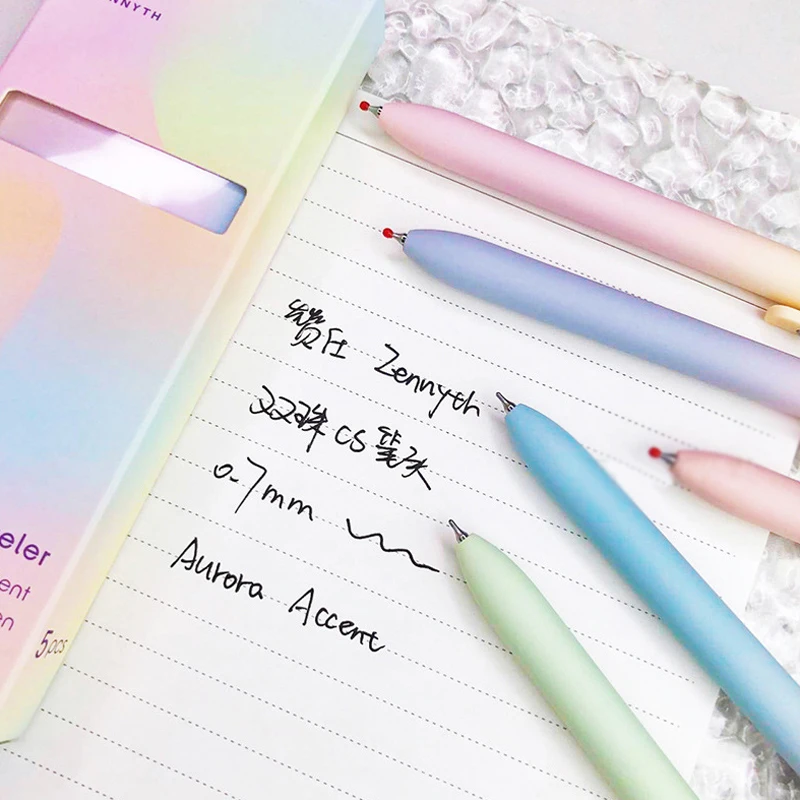 NNYTH
赞任 Zennyth
双珠 CS 笔头
0.7mm
Aurora Accent
eler
ent
en
5pcs